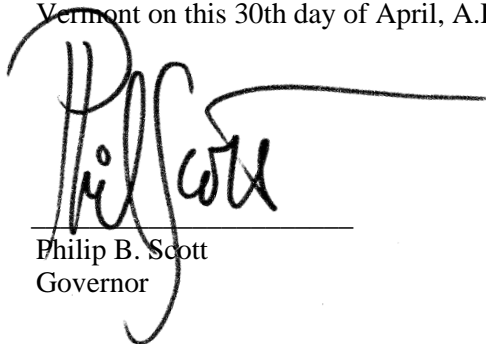 Vermont on this 30th day of April, A.D
Phil Scott
Philip B. Scott
Governor